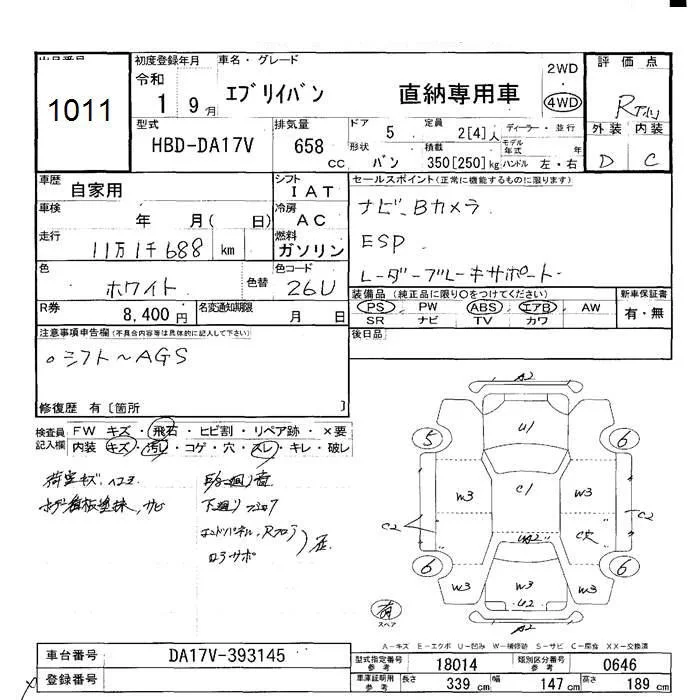 出品番号
1011
初度登録年月
令和
1 9月
車名・グレード
エブリイバン 直納専用車
2WD
・
4WD
評価点
R
外装 内装
D C
型式
HBD-DA17V
排気量
658
CC
ドア
5
定員
2[4]人
ディーラー・並行
形状
バン
積載
350[250]kg
モデル年式 年
ハンドル 左・右
車歴
自家用
シフト
IAT
セールスポイント(正常に機能するものに限ります)
ナビ、Bカメラ
ESP
レーダーブレーキサポート
車検
年 月( 日)
冷房
AC
走行
11万1千688 km
燃料
ガソリン
色
ホワイト
色替
色コード
26U
装備品(純正品に限り○をつけてください)
PS ・ PW ABS ・ エアB ・ AW
SR ナビ TV カワ
新車保証書
有・無
R券
8,400円
名変通知期限
月 日
後日品
注意事項申告欄(不具合内容等は具体的に記入して下さい)
○シフト～AGS
修復歴 有〔箇所 〕
検査員記入欄
FW キズ・飛石・ヒビ割・リペア跡・×要
内装 キズ・汚レ・コゲ・穴・スレ・キレ・破レ
荷室キズ、ヘコミ
下廻り
A2
U1
5
6
W3
C1
W3
C2
C2
6
6
W3
W3
W3
U2
A2
有
スペア
A－キズ E－エクボ U－凹み W－補修跡 S－サビ C－腐食 XX－交換済
車台番号
DA17V-393145
登録番号
型式指定番号
参考
18014
類別区分番号
参考
0646
車庫証明用
参考
長さ
339 cm
幅
147 cm
高さ
189 cm